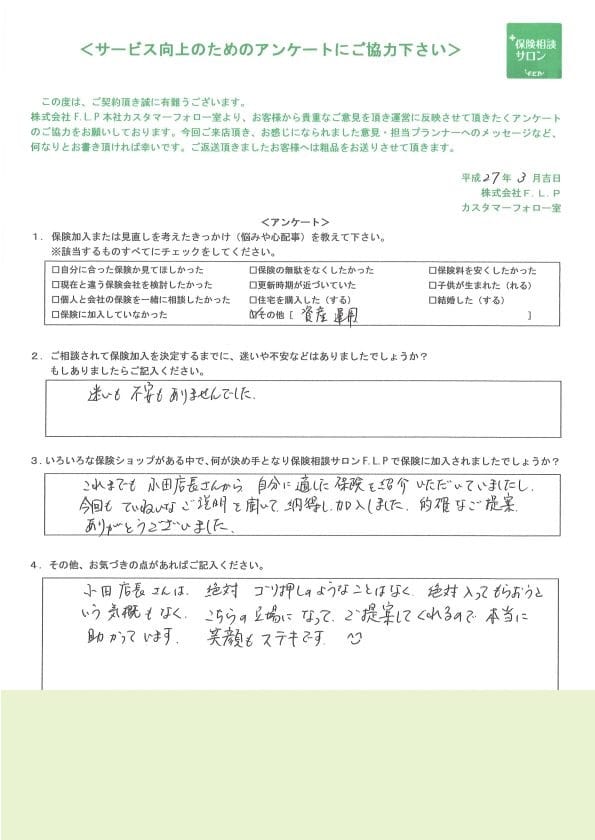 ＜サービス向上のためのアンケートにご協力下さい＞
保険相談
サロン
この度は、ご契約頂き誠に有難うございます。
株式会社F.L.P本社カスタマーフォロー室より、お客様から貴重なご意見を頂き運営に反映させて頂きたくアンケート
のご協力をお願いしております。今回ご来店頂き、お感じになられました意見・担当プランナーへのメッセージなど、
何なりとお書き頂ければ幸いです。ご返送頂きましたお客様へは粗品をお送りさせて頂きます。
平成27年 3月吉日
株式会社F.L.P
カスタマーフォロー室
＜アンケート＞
１．保険加入または見直しを考えたきっかけ（悩みや心配事）を教えて下さい。
※該当するものすべてにチェックをしてください。
□自分に合った保険か見てほしかった □保険の無駄をなくしたかった □保険料を安くしたかった
□現在と違う保険会社を検討したかった □更新時期が近づいていた □子供が生まれた（れる）
□個人と会社の保険を一緒に相談したかった □住宅を購入した（する） □結婚した（する）
□保険に加入していなかった ☑その他［ 資産運用 ］
２．ご相談されて保険加入を決定するまでに、迷いや不安などはありましたでしょうか？
もしありましたらご記入ください。
迷いも 不安も ありませんでした。
３．いろいろな保険ショップがある中で、何が決め手となり保険相談サロンF.L.Pで保険に加入されましたでしょうか？
これまでも 小田店長さんから 自分に適した保険を紹介いただいていましたし、
今回も ていねいなご説明を聞いて、納得し加入しました。的確なご提案、
ありがとうございました。
４．その他、お気づきの点があればご記入ください。
小田店長さんは、絶対 ゴリ押しのようなことはなく、絶対入ってもらおうと
いう気概もなく、こちらの立場になって、ご提案してくれるので、本当に
助かっています。 笑顔も ステキです。